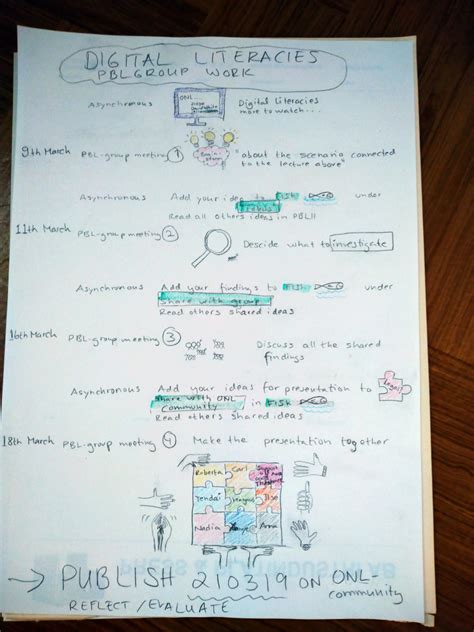 DIGITAL LITERACIES
PBL GROUP WORK
Asynchronous ONL... Digital Literacies
more to watch....
9th March PBL-group meeting 1 Brain-storm "about the scenario connected
to the lecture above"
Asynchronous Add your idea to FISH under
Read all others ideas in PBL!!
11th March PBL-group meeting 2 Descide what to investigate
Asynchronous Add your findings to FISH under
share with group
Read others shared ideas
16th March PBL-group meeting 3 Discuss all the shared
findings
Asynchronous Add your ideas for presentation to
share with ONL
community in FISH
Read others shared ideas
18th March PBL-group meeting 4 Make the presentation together
Roberta Carl Support
Tendai Ilse
Nadia Anna
→ PUBLISH 210319 ON ONL-
community
REFLECT/EVALUATE